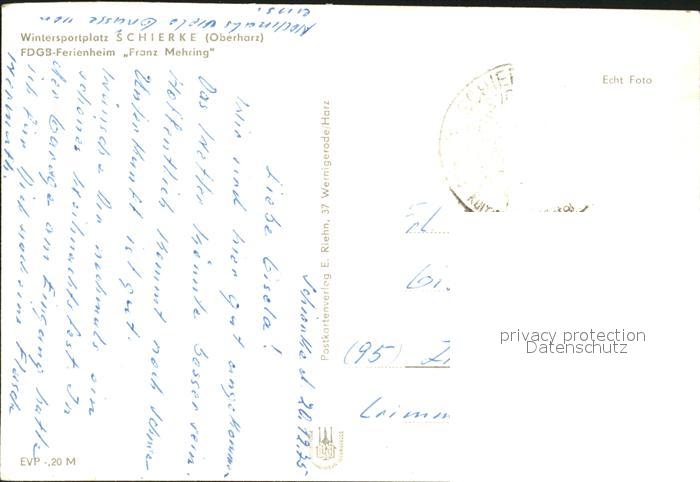 Wintersportplatz SCHIERKE (Oberharz)
FDGB-Ferienheim „Franz Mehring"
Echt Foto
SCHIER
Schierke d. 20.12.75
Liebe Gisela!
Wir sind hier gut angekommen
Das Wetter könnte besser sein.
Hoffentlich kommt noch Schnee
Unterkunft ist gut.
Wünsche Dir nochmals ein
schönes Weihnachtsfest. In
der Garage am Eingang hatte
ich für Dich noch eine Flasche
Wermuth.
Nochmals viele Grüsse von
uns.
Postkartenverlag E. Riehn, 37 Wernigerode/Harz
Frl.
Gi
(95) Z
Crimm
privacy protection
Datenschutz
EVP -,20 M